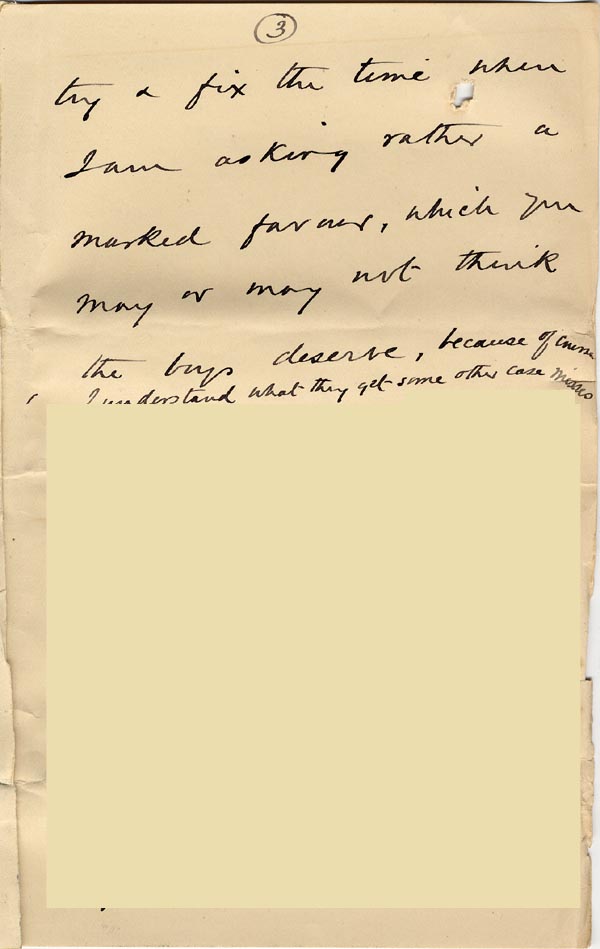 3
try & fix the time when
I am asking rather a
marked favour, which you
may or may not think
the boys deserve, because of course
I understand what they get some other case misses